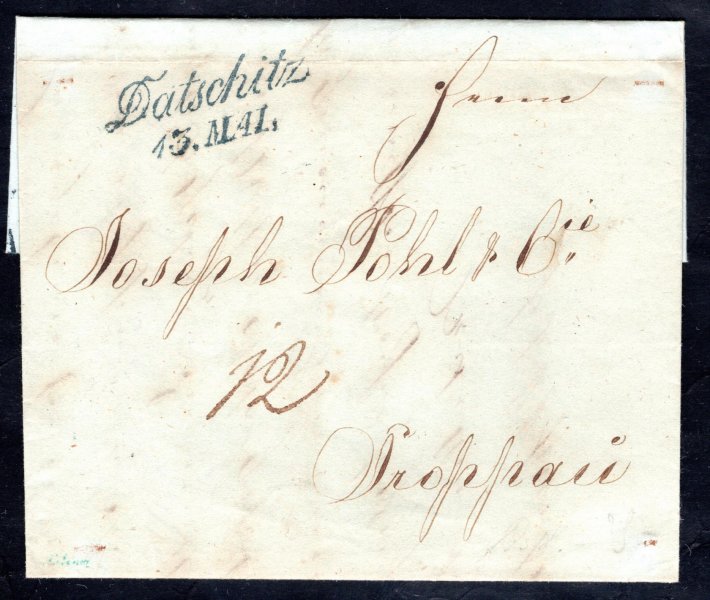 Datschitz
13. MAI.
Herrn
Joseph Pohl & Cie
12
Troppau